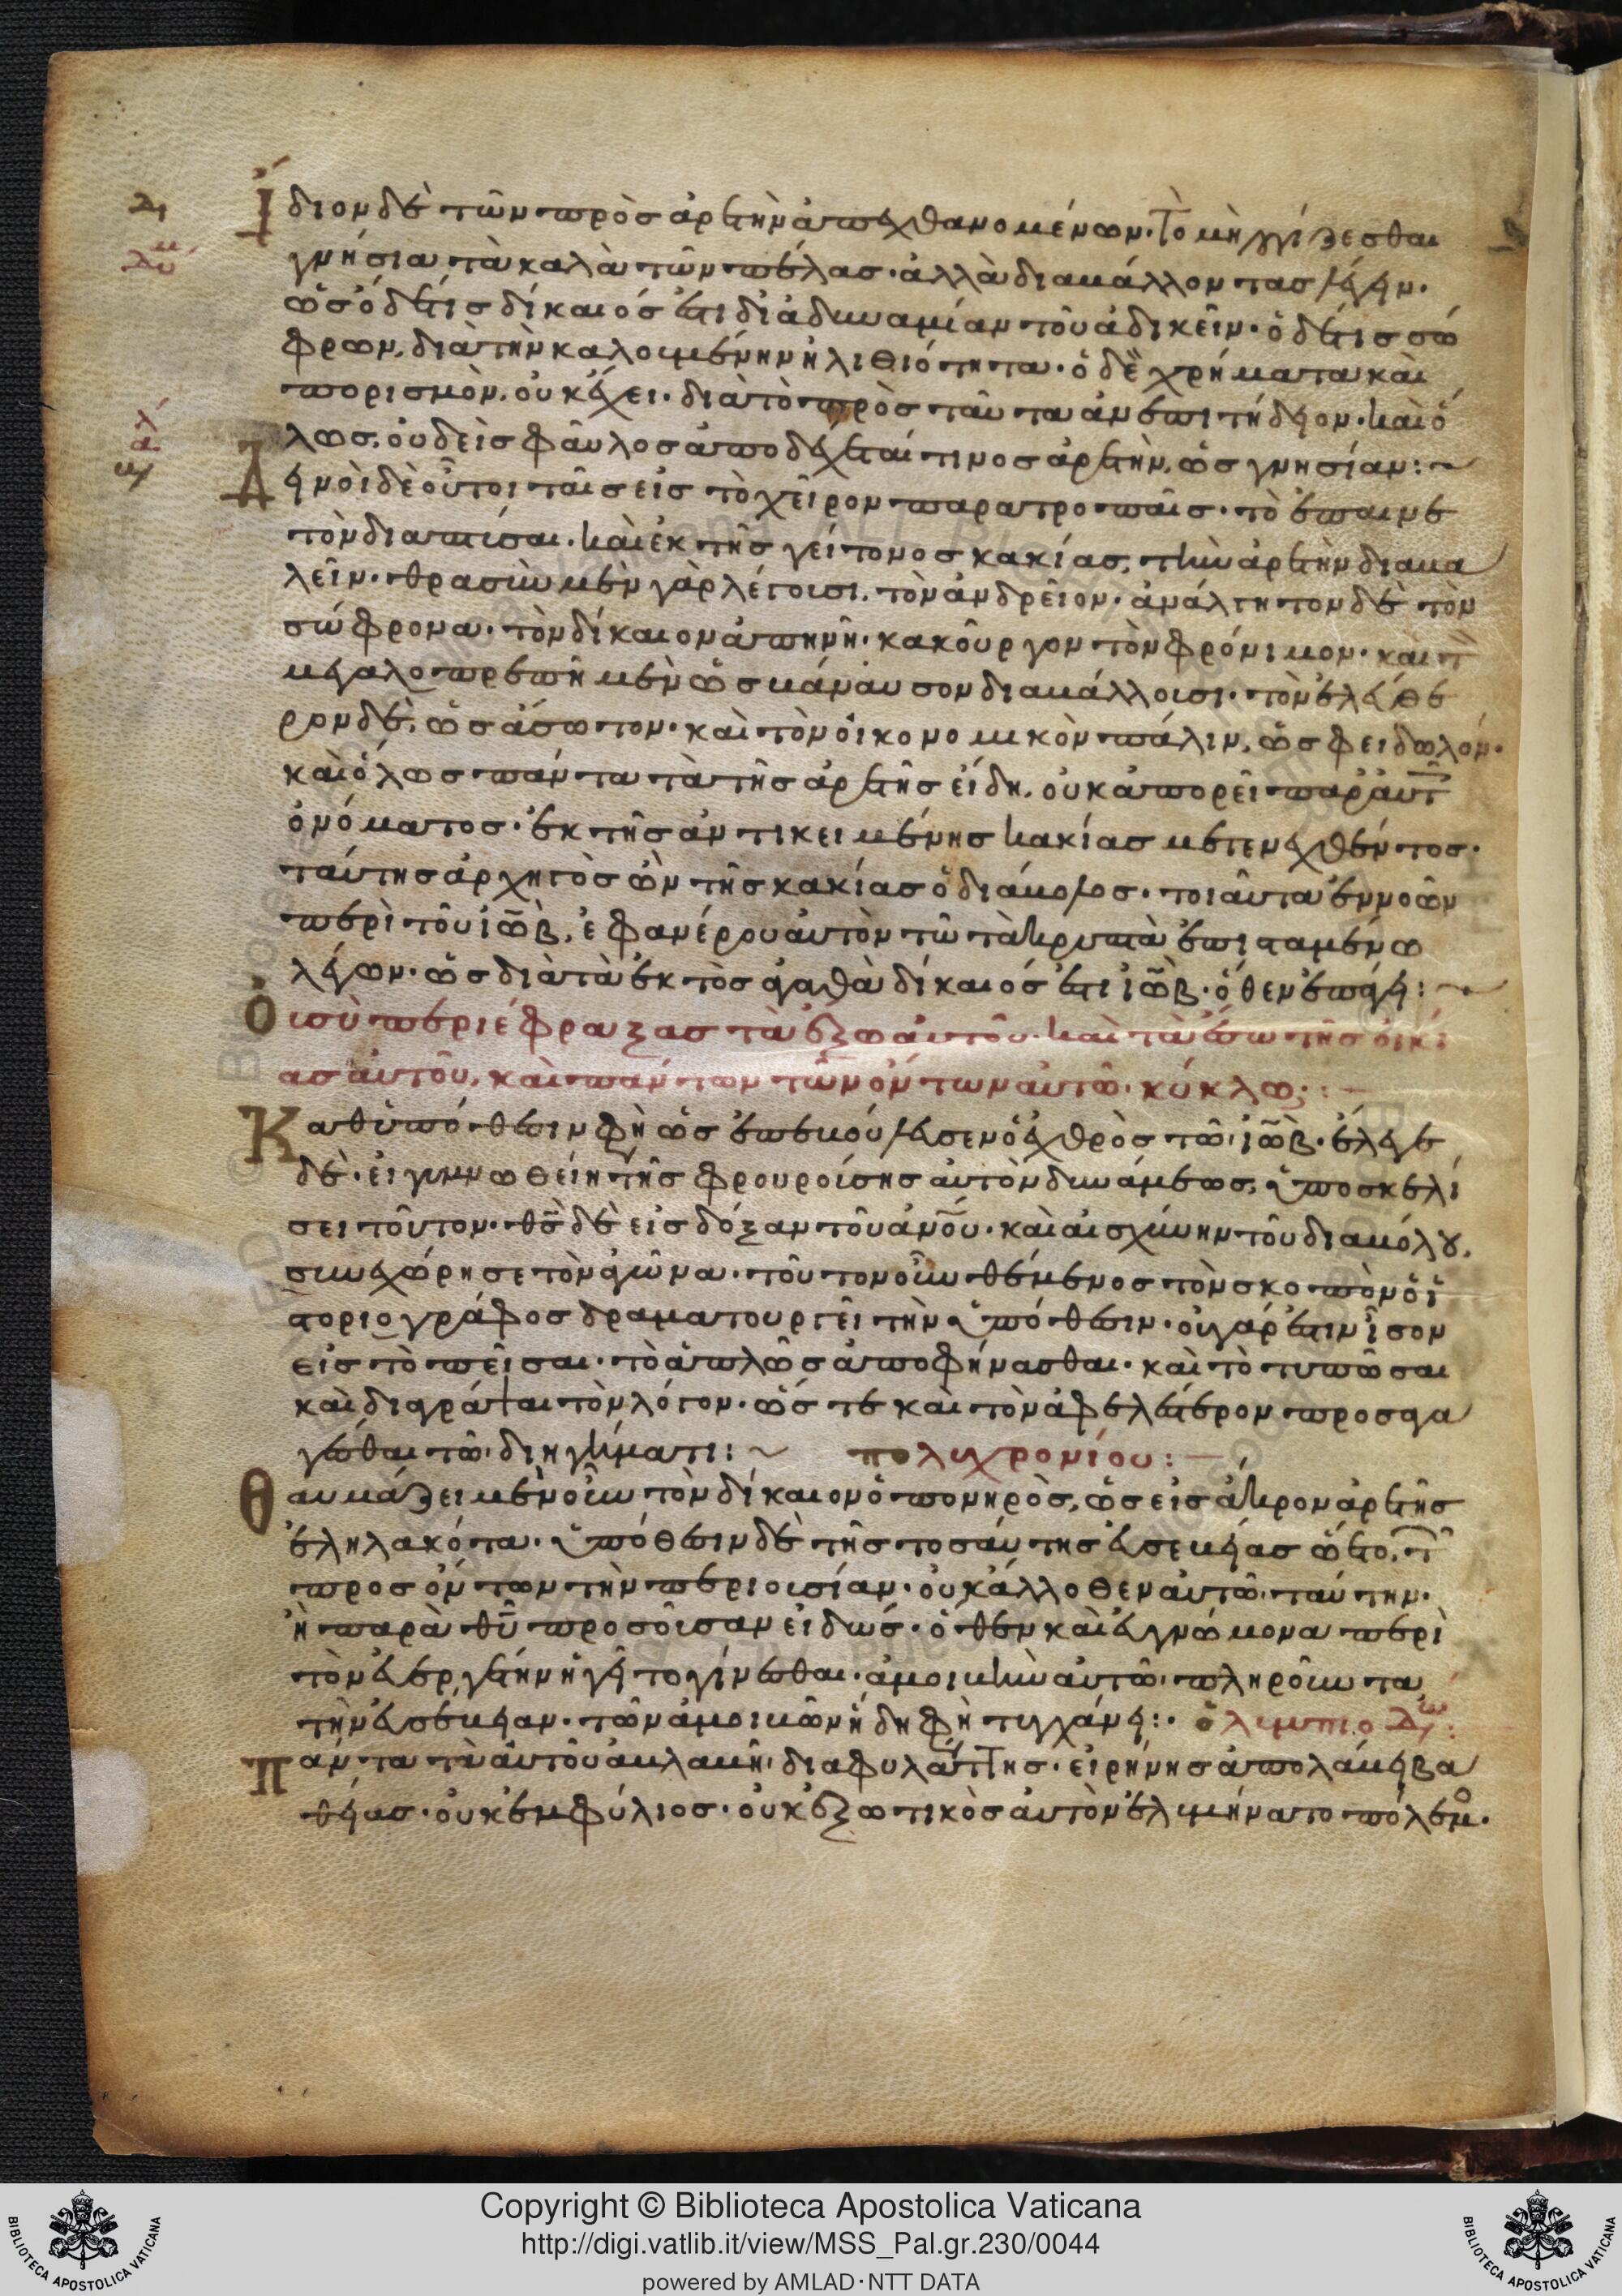 Ἴδιον δὲ τῶν πρὸς ἀρετὴν ἀπεχθανομένων. τὸ μὴ λογίζεσθαι
γνήσια τὰ καλὰ τῶν πέλας. ἀλλὰ διαβάλλοντας λέγειν.
ὡς ὅδε τίς δίκαιός ἐστι δι' ἀδυναμίαν τοῦ ἀδικεῖν. ὅδε τις σώ
φρων, διὰ τὴν καλουμένην ἠλιθιότητα. ὁ δὲ χρήματα καὶ
πορισμὸν, οὐκ ἔχει. διὰ τὸ πρὸς ταῦτα ἀνεπιτήδειον. καὶ ὅ
λως, οὐδεὶς φαῦλος ἀποδέχεταί τινος ἀρετὴν, ὡς γνησίαν:
Δεινοὶ δὲ οὗτοι ταῖς εἰς τὸ χεῖρον παρατροπαῖς. τὸ ἐπαινε
τὸν διαπτύσαι. καὶ ἐκ τῆς γείτονος κακίας, τὴν ἀρετὴν διαβα
λεῖν. θρασὺν μὲν γὰρ λέγουσι, τὸν ἀνδρεῖον. ἀνάλγητον δὲ τὸν
σώφρονα. τὸν δίκαιον ἀπηνῆ. κακοῦργον τὸν φρόνιμον. καὶ τ
μεγαλοπρεπῆ μὲν ὡς βάναυσον διαβάλλουσι. τὸν ἐλευθέ
ριον δὲ, ὡς ἄσωτον. καὶ τὸν οἰκονομικὸν πάλιν, ὡς φειδωλόν.
καὶ ὅλως πάντα τὰ τῆς ἀρετῆς εἴδη, οὐκ ἀπορεῖ παρ' αὐτ
ὀνόματος. ἐκ τῆς ἀντικειμένης κακίας μετενεχθέντος.
ταύτης ἀρχηγὸς ὢν τῆς κακίας ὁ διάβολος. τοιαῦτα ἐννοῶν
περὶ τοῦ ἰὼβ, ἐφανέρου αὐτὸν τῶ τὰ κρυπτὰ ἐπισταμένω
λέγων. ὡς διὰ τὰ ἐκτὸς ἀγαθὰ δίκαιός ἐστι ἰὼβ. ὅθεν ἐπάγει:
Οὐ σὺ περιέφραξας τὰ ἔξω αὐτοῦ. καὶ τὰ ἔσω τῆς οἰκί
ας αὐτοῦ, καὶ πάντων τῶν ὄντων αὐτῶ. κύκλω;
Καθ' ὑπόθεσιν φησὶν ὡς ἐπεβούλευσεν ὁ ἐχθρὸς τῶ ἰὼβ. ἔλεγε
δὲ. εἰ γυμνωθείη τῆς φρουρούσης αὐτὸν δυνάμεως, ὑποσκελί
σει τοῦτον. θς δὲ εἰς δόξαν τοῦ ἀνου. καὶ αἰσχύνην τοῦ διαβόλου,
συνεχώρησε τὸν ἀγῶνα. τοῦτον οὖν θέμενος τὸν σκοπὸν ὁ ἱ
στοριογράφος δραματουργεῖ τὴν ὑπόθεσιν. οὐ γάρ ἐστιν ἶσον
εἰς τὸ πεῖσαι. τὸ ἁπλῶς ἀποφήνασθαι. καὶ τὸ τυπῶσαι
καὶ διαγράψαι τὸν λόγον. ὥς τε καὶ τὸν ἀφελέστερον προσαγα
γέσθαι τῶ διηγήματι: πολυχρονίου:
Θαυμάζει μὲν οὖν τὸν δίκαιον ὁ πονηρὸς, ὡς εἰς ἄκρον ἀρετῆς
ἐληλακότα. ὑπόθεσιν δὲ τῆς τοσαύτης εὐσεβείας ᾤετο, τ
προσόντων τὴν περιουσίαν. οὐκ ἄλλοθεν αὐτῶ ταύτην.
ἢ παρὰ θυ προσοῦσαν εἰδώς. ὅθεν καὶ εὐγνώμονα περὶ
τὸν εὐεργέτην ἡγεῖτο γίνεσθαι. ἀμοιβὴν αὐτῶ πληροῦντα
τὴν εὐσέβειαν. τῶν ἀμοιβῶν ἤδη φησὶ τυγχάνει: ὀλυμπιοδώρ:
Πάντα τὰ αὐτοῦ ἀβλαβῆ διαφυλάττεις. εἰρήνης ἀπολαύει βα
θείας. οὐκ ἐμφύλιος. οὐκ ἐξωτικὸς αὐτὸν ἐλυμήνατο πόλεμο.